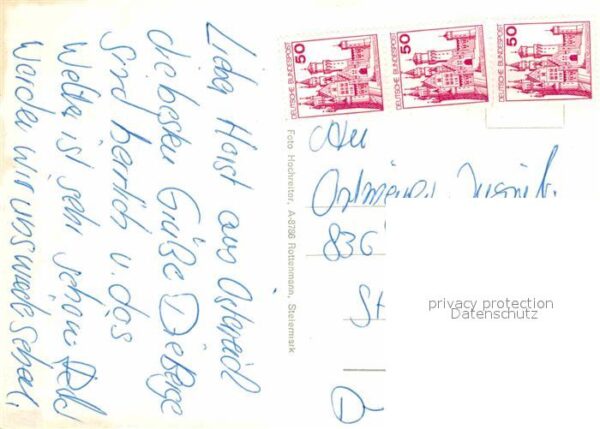 Lieber Horst aus Östereich
die besten Grüße Die Berge
sind herrlich u. das
Wetter ist sehr schön. Bald
werden wir uns wieder sehen.
Foto Hochreiter, A-8786 Rottenmann, Steiermark
DEUTSCHE BUNDESPOST 50
DEUTSCHE BUNDESPOST 50
DEUTSCHE BUNDESPOST 50
An
836
St
D
privacy protection
Datenschutz